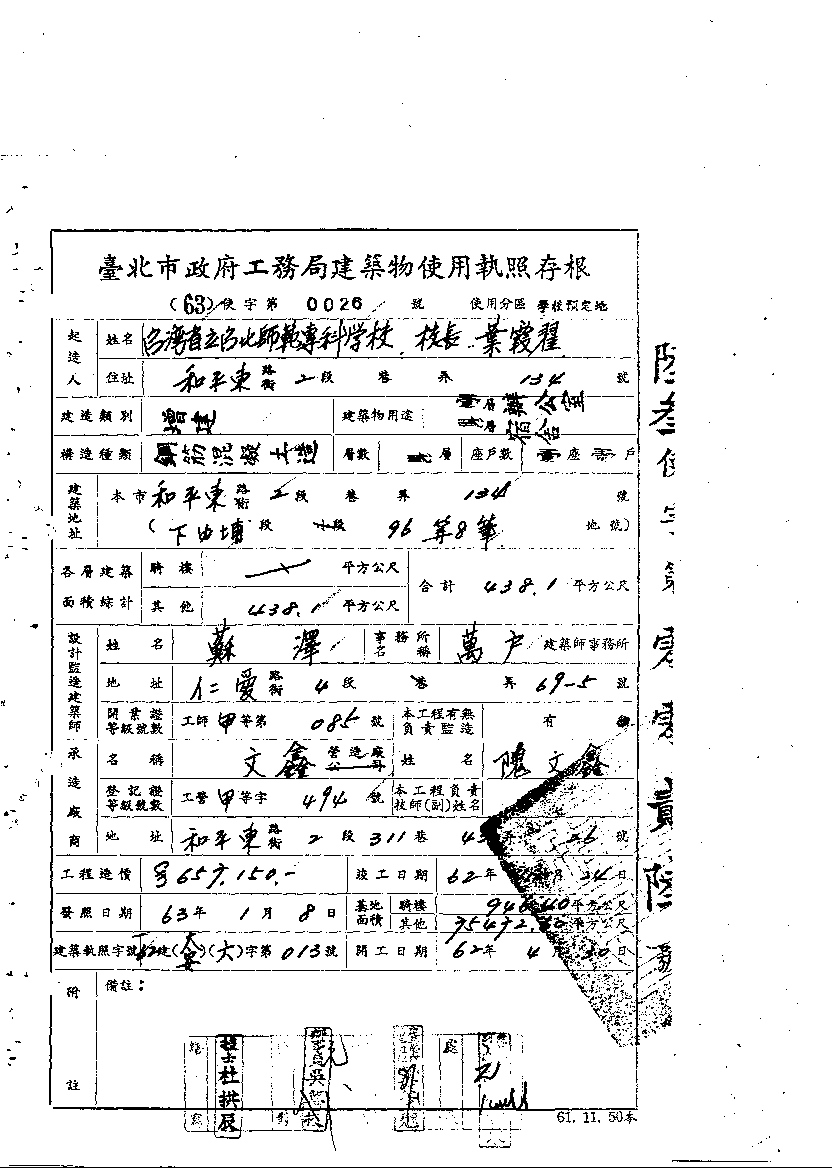 臺北市政府工務局建築物使用執照存根
(63)使字第 0026 號 使用分區 學校預定地
起造人 姓名 台灣省立台北師範專科学校 校長 葉霞翟
住址 和平東路街 2段 巷 弄 134 號
建造類別 增建 建築物用途 層辦公室 層宿舍
構造種類 鋼筋混凝土造 層數 層 座戶數 座 戶
建築地址 本市和平東路街 2段 巷 弄 134 號
(下內埔段 段 96 等8筆 地號)
各層建築面積綜計 騎樓 平方公尺 合計 438.1 平方公尺
其他 438.1 平方公尺
設計監造建築師 姓名 蘇澤 事務所名稱 萬戶 建築師事務所
地址 仁愛路街 4段 巷 弄 69-5 號
開業證等級號數 工師甲等第 085 號 本工程有無負責監造 有
承造廠商 名稱 文鑫 營造廠公司 姓名 隗文鑫
登記證等級號數 工營甲等字 494 號 本工程負責技師(副)姓名
地址 和平東路街 2段 311巷 26 號
工程造價 657,150.- 竣工日期 62年 月 日
發照日期 63年 1月 8日 基地面積 騎樓 平方公尺
其他 平方公尺
建築執照字號 62建(大安)(大)字第 013號 開工日期 62年 4月 30日
附註 備註:
技士杜拱辰
61.11.50本
陸叁使字第零零貳陸號